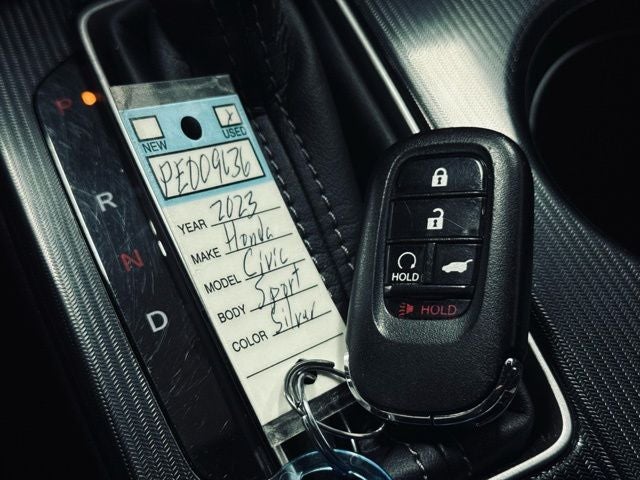 P
R
N
D
NEW
USED
PE009636
YEAR 2023
MAKE Honda
MODEL Civic
BODY Sport
COLOR Silver
HOLD
HOLD